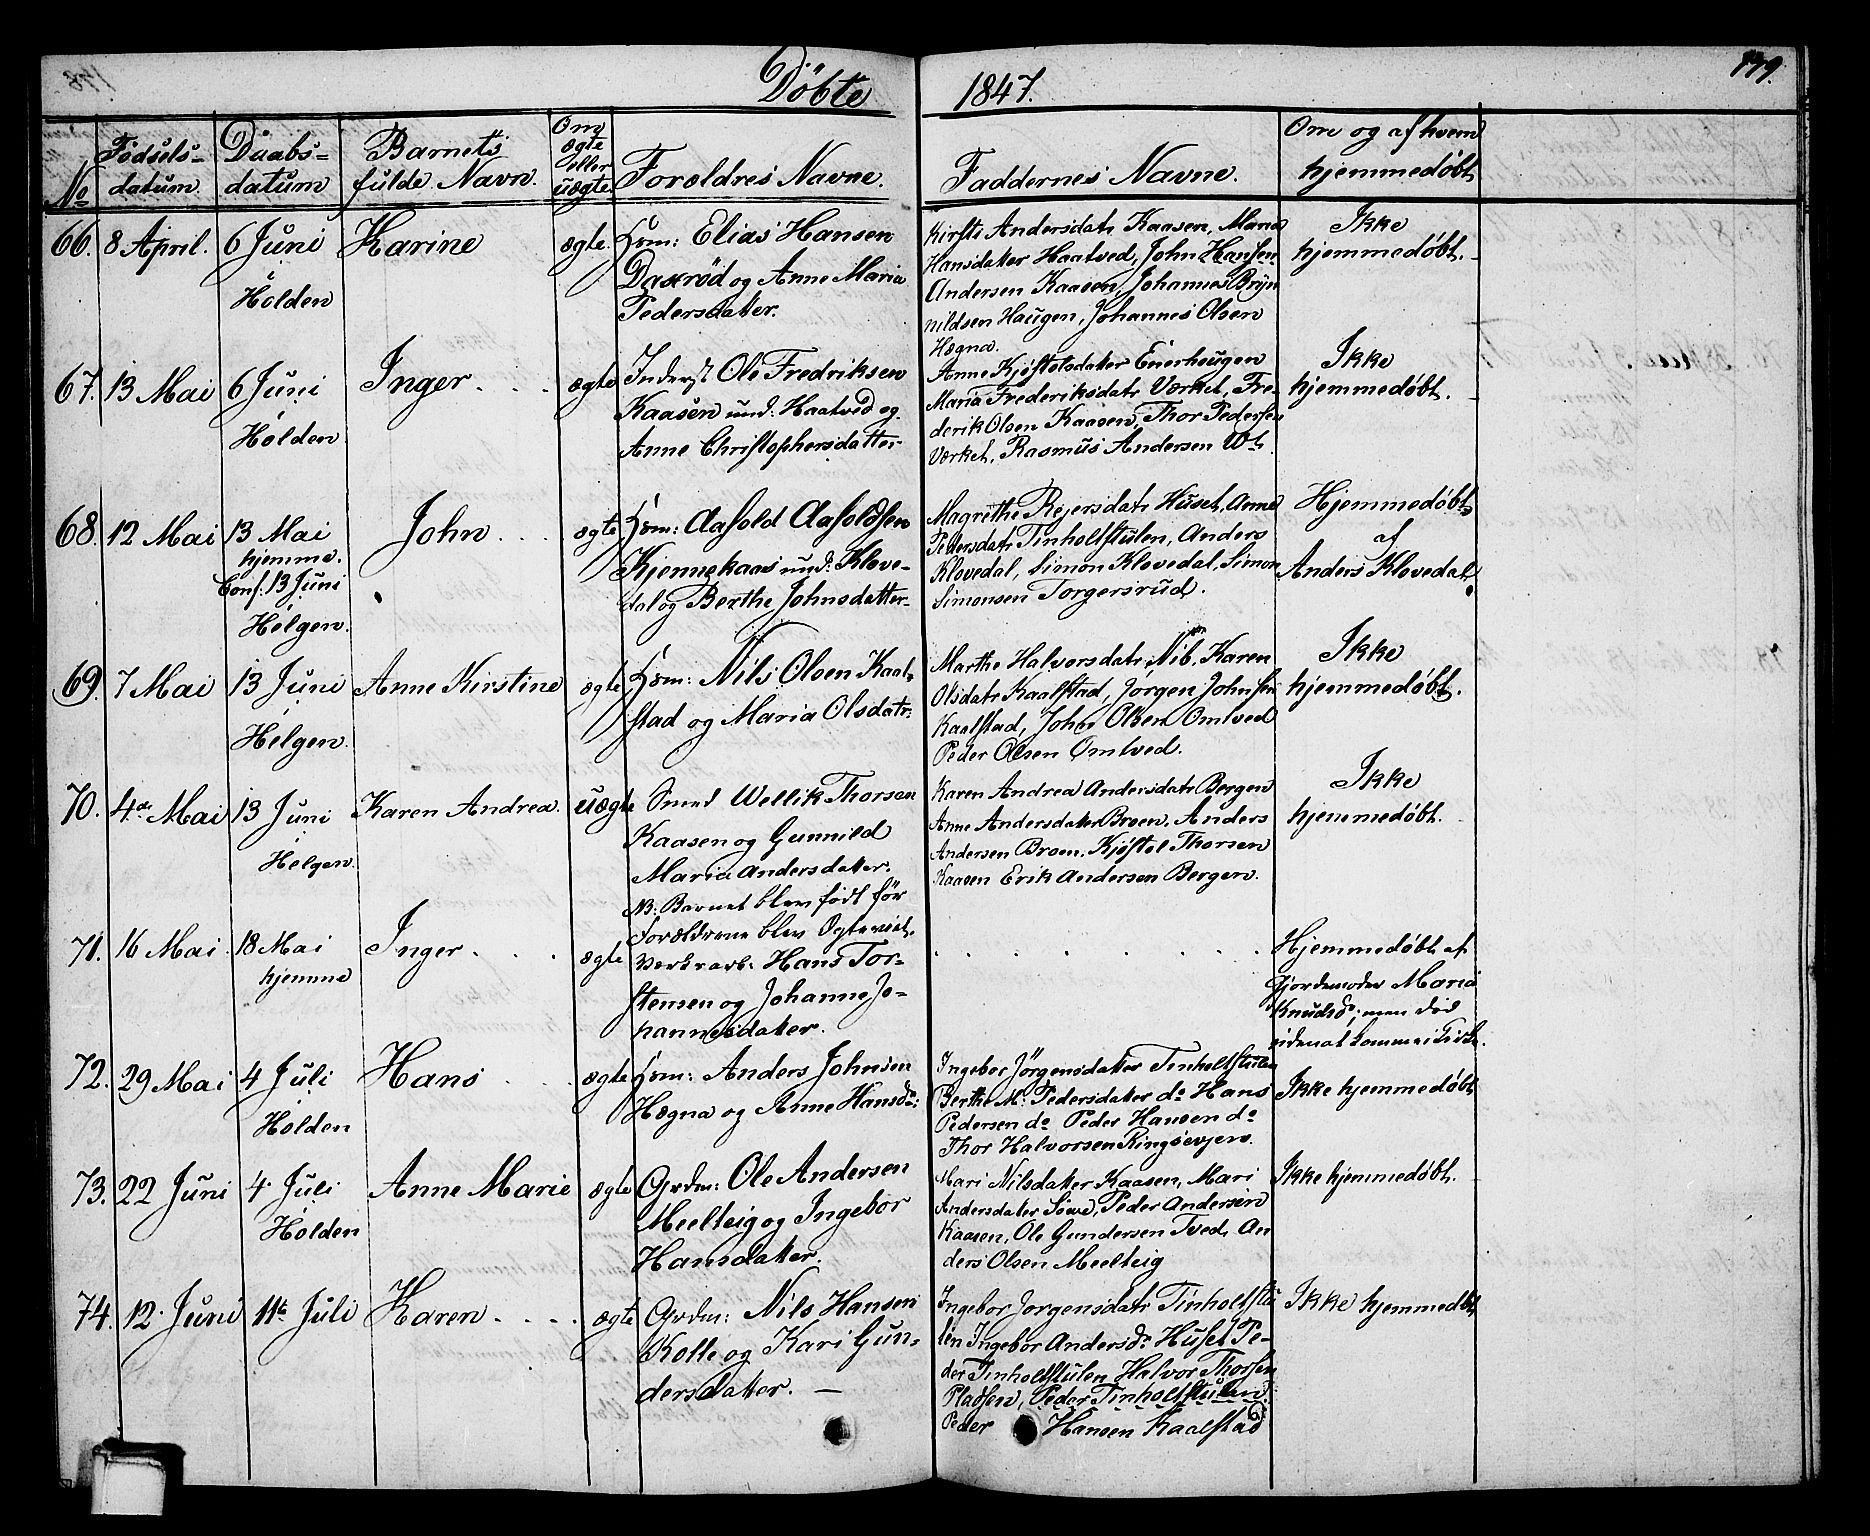 Döbte 1847. 179.
No Födsels-datum. Daabs-datum Barnets fulde Navn. Om ægte eller uægte Forældres Navne. Faddernes Navne. Om og af hvem hjemmedøbt
66. 8 April. 6 Juni Holden Karine ægte.
Hsm: Elias Hansen
Daxröd og Anne Maria
Pedersdatter.
Kirsti Andersdatr Kaasen, Maria
Hansdatter Haatved, John Hansen
Andersen Kaasen, Johannes Bryn
nildsen Haugen, Johannes Olsen
Hægna.
Ikke
hjemmedøbt.
67. 13 Mai 6 Juni Holden Inger ægte
Inderst Ole Fredriksen
Kaasen und: Haatved og
Anne Christophersdatter
Anne Kjøstelsdatter Enerhougen
Maria Frederiksdatr Værket, Fre-
derik Olsen Kaasen, Thor Pedersen
Værket, Rasmus Andersen
Ikke
hjemmedøbt.
68. 12 Mai 13 Mai
hjemme.
Conf. 13 Juni
Helgen.
John ægte
Hsm: Aasold Aasoldsen
Kjennekaas und: Klove-
dal og Berthe Johnsdatter
Magrethe Rejersdatr Huset, Anne
Pedersdatr Tinholtstulen, Anders
Klovedal, Simon Klovedal, Simon
Simonsen Torgersrud.
Hjemmedøbt
af
Anders Klovedal
69. 7 Mai 13 Juni Helgen. Anne Kirstine ægte
Hsm: Nils Olsen Kaal-
stad og Maria Olsdatr:
Marthe Halvorsdatr Nib, Karen
Olsdatr Kaalstad, Jørgen Johnsen
Kaalstad, John Olsen Omtved
Peder Olsen Omtved.
Ikke
hjemmedøbt.
70. 4de Mai 13 Juni Helgen. Karen Andrea. uægte
Smed Wellik Thorsen
Kaasen og Gunnild
Maria Andersdatter.
NB: Barnet blev født før
Forældrene blev Ægteviet.
Karen Andrea Andersdatr Bergen
Anne Andersdatter Broen, Anders
Andersen Broen, Kjøstel Thorsen
Kaasen Erik Andersen Bergen.
Ikke
hjemmedøbt.
71. 16 Mai 18 Mai
hjemme
Inger ægte
Verksarb: Hans Tor-
stensen og Johanne Jo-
hannesdatter.
Hjemmedøbt af
Gjordemoder Maria
Knudsdr; men død
uden at komme i Kirke.
72. 29 Mai 4 Juli Holden Hans ægte
Hsm: Anders Johnsen
Hægna og Anne Hansdr:
Ingebor Jörgensdatter Tinholtstulen
Berthe M. Pedersdatter do Hans
Pedersen do Peder Hansen do
Thor Halvorsen Ringsevjen.
Ikke hjemmedøbt
73. 22 Juni 4 Juli Holden Anne Marie ægte
Grdm: Ole Andersen
Meelteig og Ingebor
Hansdatter.
Mari Nilsdatter Kaasen, Mari
Andersdatter Söve, Peder Andersen
Kaasen, Ole Gundersen Tved, An
ders Olsen Meelteig
Ikke hjemmedøbt.
74. 12. Juni 11te Juli Karen ægte
Grdm: Nils Hansen
Kolle og Kari Gun-
dersdatter. —
Ingebor Jorgensdatr Tinholtstu
len Ingebor Andersdr Huset Pe-
der Tinholtstulen Halvor Thorsen
Pladsen, Peder Tinholtstulen
Peder Hansen Kaalstad
Ikke hjemmedøbt